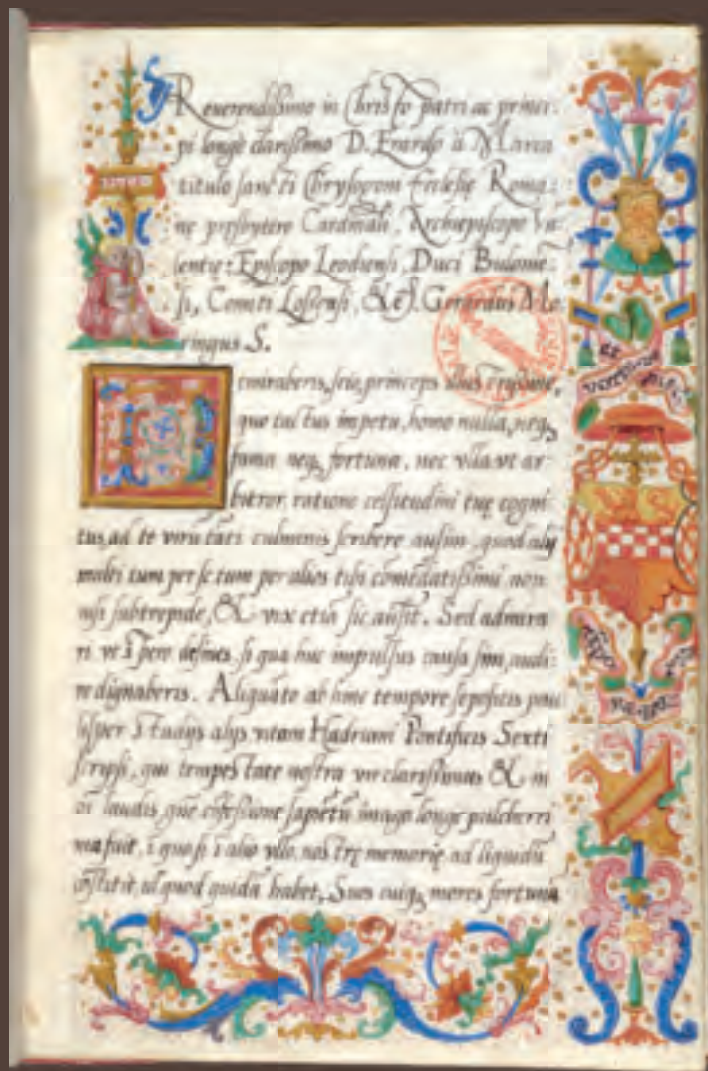 Reuerendissimo in Christo patri ac princi-
pi longè clarissimo D. Erardo à Marca
titulo sancti Chrysogoni Ecclesię Roma-
nę presbytero Cardinali, Archiepiscopo Va-
lentię: Episcopo Leodiensi, Duci Buloniē-
si, Comiti Lossensi, &c. Gerardus Mo-
ringus S.
miraberis, scio, princeps illustrissime,
quo tactus impetu, homo nulla, neq3
fama neq3 fortuna, nec vlla vt ar-
bitror, ratione celsitudini tuę cogni
tus, ad te scribere ausim, quod alij
multi tum per se tum per alios tibi comēdatissimi non
nisi subtrepide, & vix etiā sic ausit. Sed admira
ri vt spero desines, si qua huc impulsus causa sim, audi-
re dignaberis. Aliquāto ab hinc tempore sepositis pau
lisper studijs alijs vitam Hadriani Pontificis Sexti
scripsi, qui tempestate nostra vir clarissimus &
laudis, imago longe pulcherri
ma fuit, i quo si i alio vllo nostrę memorię ad liquidū
cōstitit, id quod quidā habet, Suos cuiq3 mores fortunā